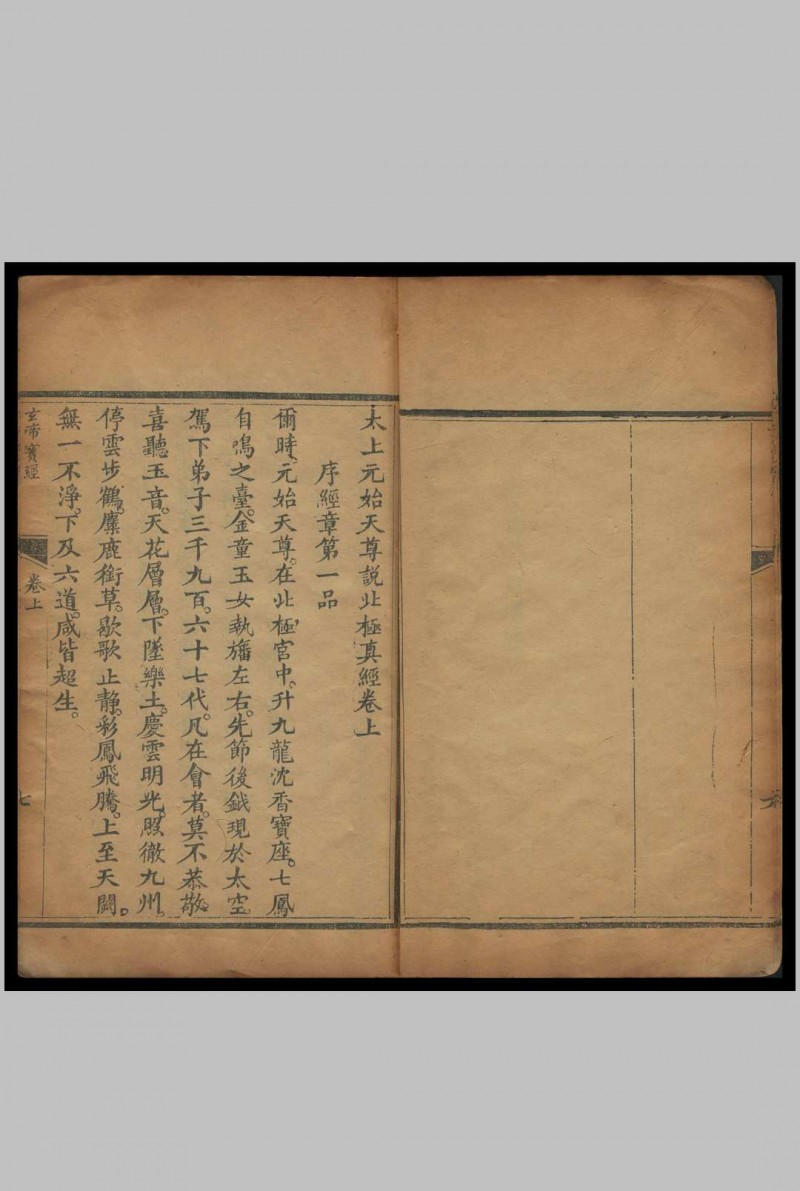 太上元始天尊說北極真經卷上
序經章第一品
爾時。元始天尊。在北極宮中。升九龍沈香寶座。七鳳
自鳴之臺。金童玉女執旛左右。先節後鉞現於太空
駕下弟子三千九百。六十七代。凡在會者。莫不恭敬
喜聽玉音。天花層層。下墜樂土。慶雲明光。照徹九州。
停雲步鶴。麋鹿銜草。歇歌止靜。彩鳳飛騰。上至天闕。
無一不淨。下及六道。咸皆超生。
玄帝寶經
卷上
七